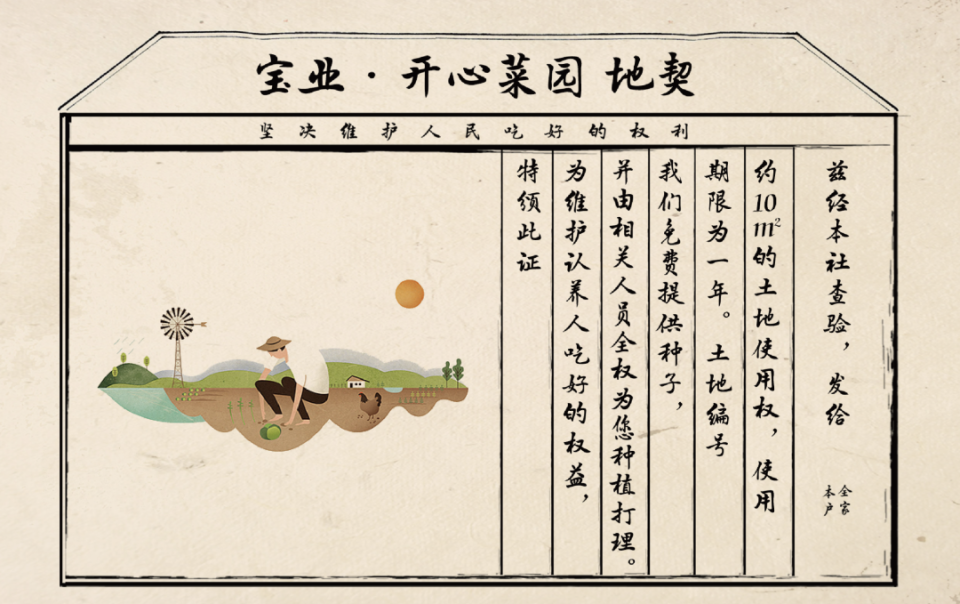 宝业·开心菜园 地契
坚决维护人民吃好的权利
兹经本社查验，发给
全家
本户
约10m²的土地使用权，使用
期限为一年。土地编号
我们免费提供种子，
并由相关人员全权为您种植打理。
为维护认养人吃好的权益，
特须此证